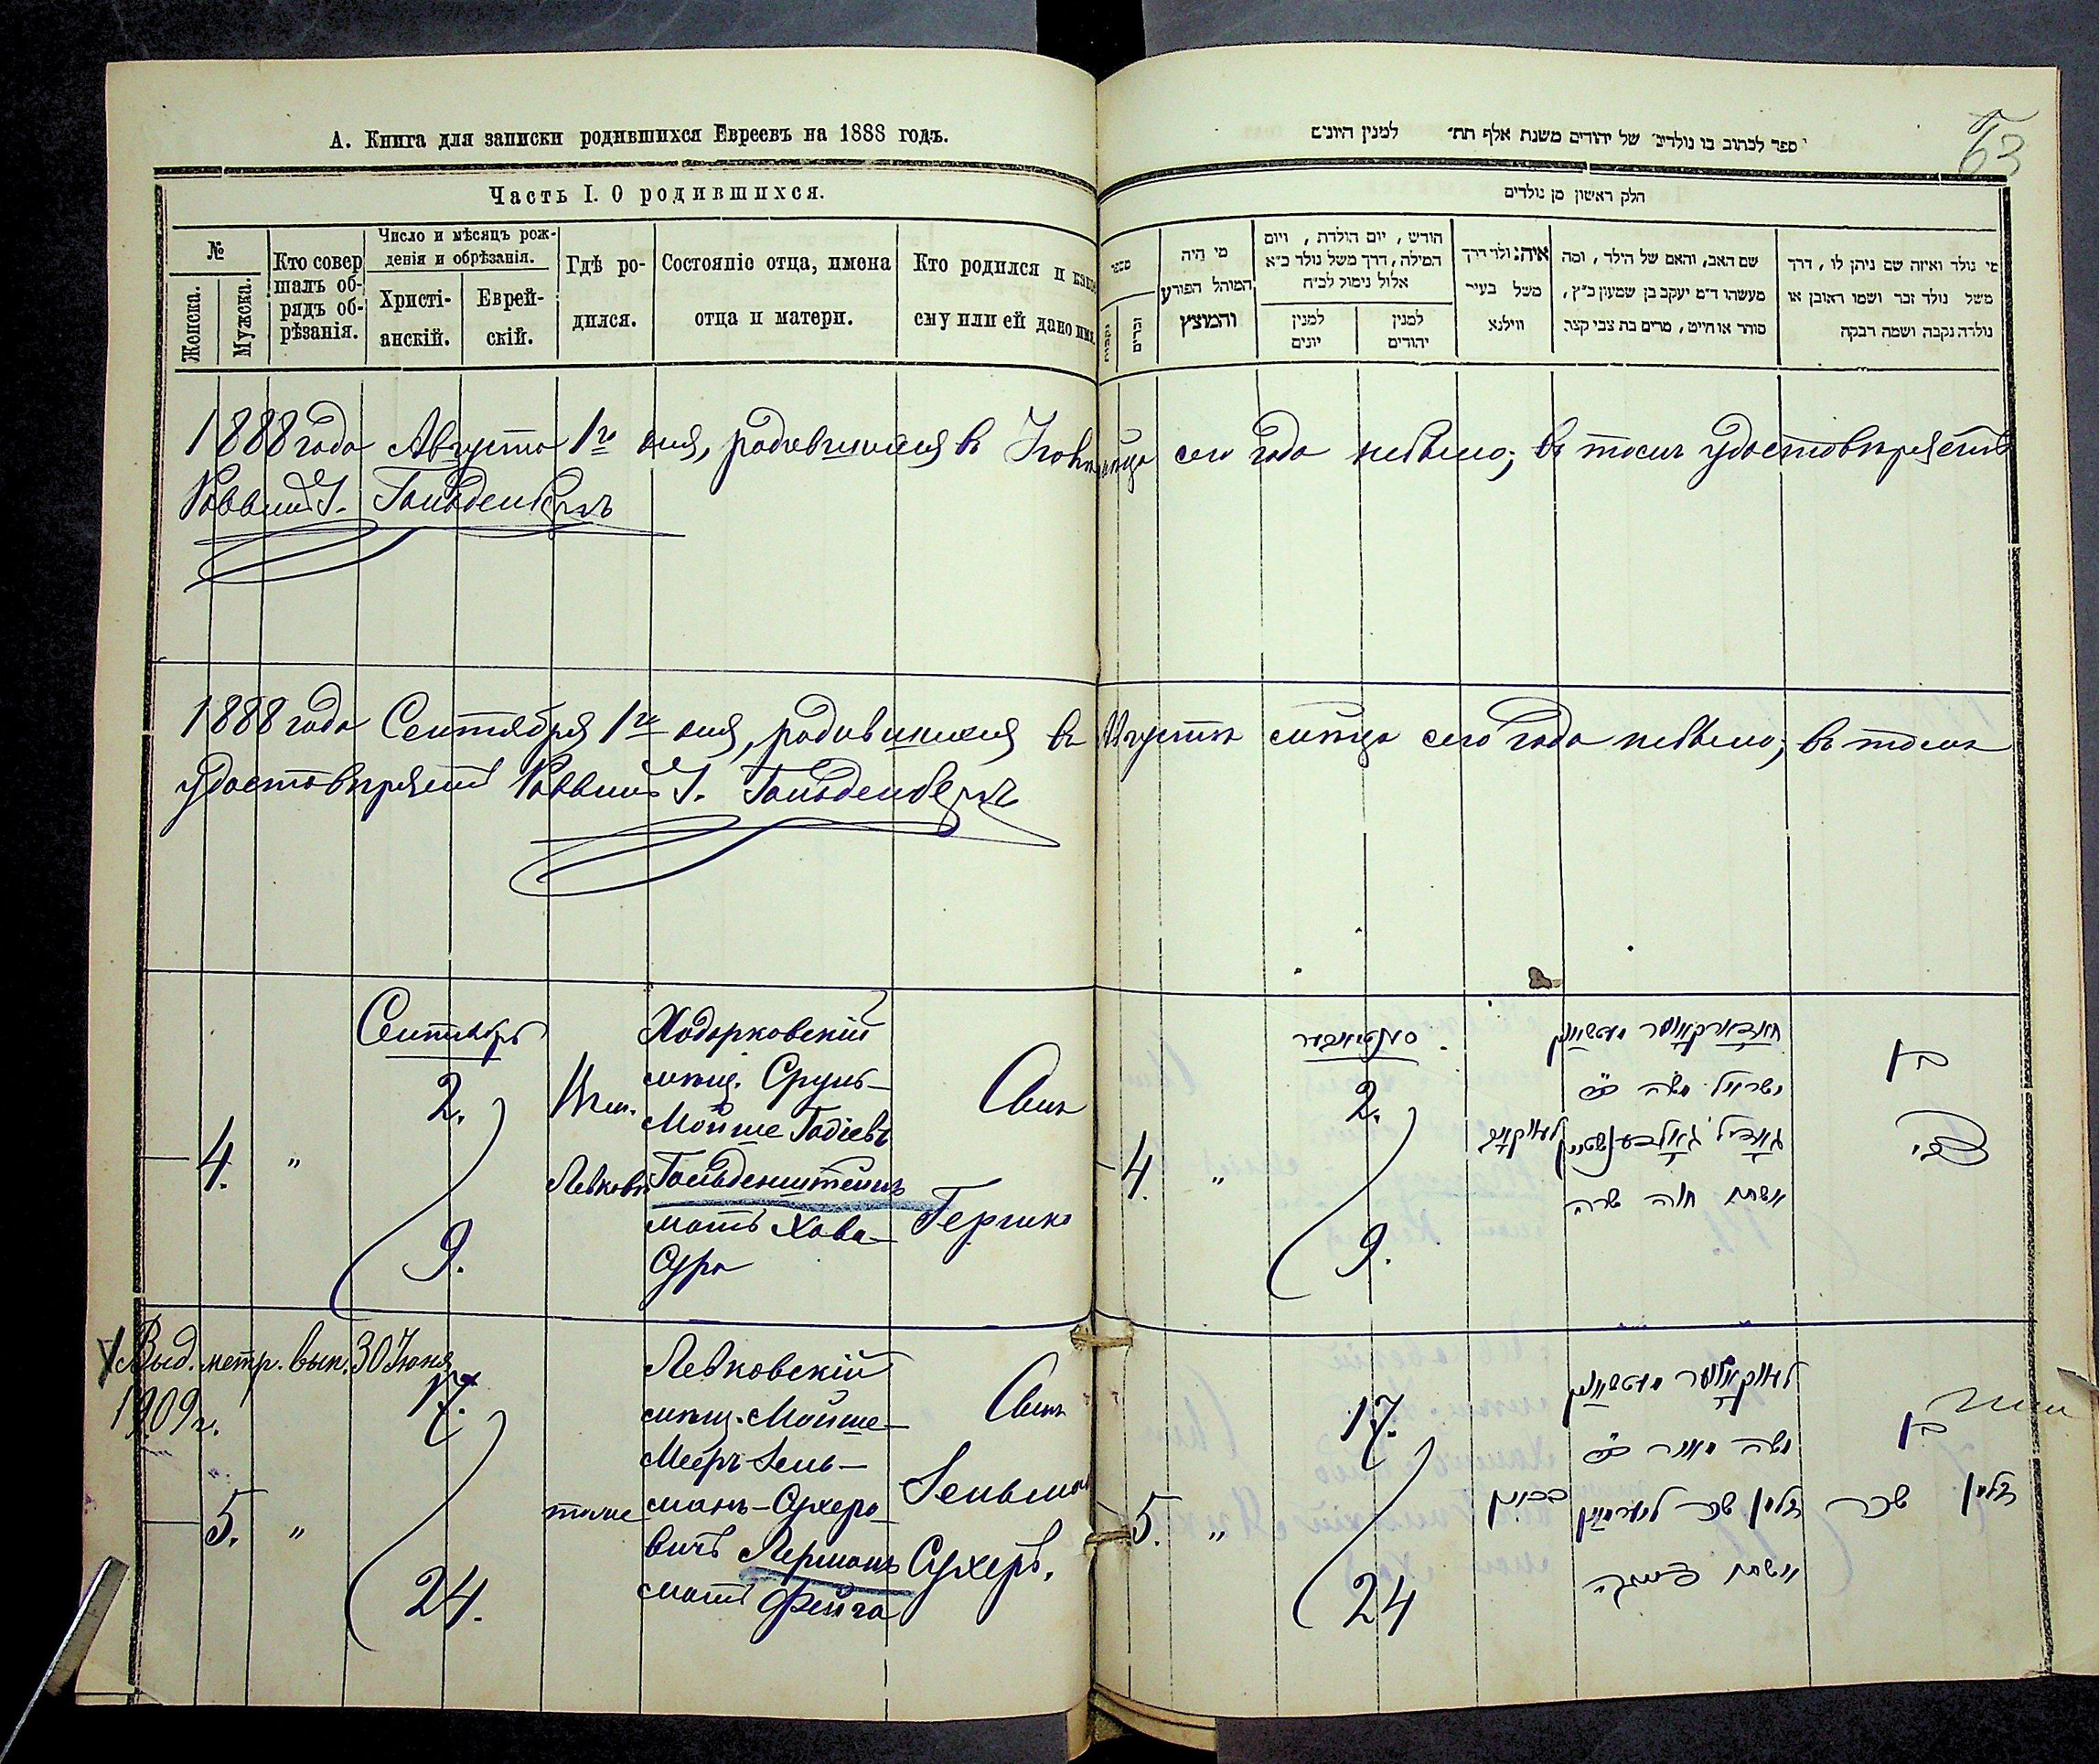 А. Книга для записки родившихся Евреевъ на 1888 годъ.
Часть I. О родившихся.
№
Женска.
Мужска.
Кто совершалъ обрядъ обрѣзанія.
Число и мѣсяцъ рожденія и обрѣзанія.
Христіанскій.
Еврейскій.
Гдѣ родился.
Состояніе отца, имена отца и матери.
Кто родился и какое ему или ей дано имя.
63
ספר לכתוב בו נולדים של יהודים משנת אלף תת״ למנין היונים
חלק ראשון מן נולדים
מספר
נקבות
זכרים
מי היה
המוהל הפורע
והמוצץ
חודש, יום הולדת, ויום
המילה, דרך משל נולד כ״א
אלול נימול לכ״ח
למנין
יונים
למנין
יהודים
איה: ולו דרך
משל בעיר
ווילנא
שם האב, והאם של הילד, ומה
מעשהו ד״מ יעקב בן שמעון כ״ץ,
סוחר או חייט, מרים בת צבי קצב.
מי נולד ואיזה שם ניתן לו, דרך
משל נולד זכר ושמו ראובן או
נולדה נקבה ושמה רבקה
1888 года Августа 1го дня, родившихся въ Іюлѣ мѣсяце сего года небыло; въ томъ удостовѣряетъ
Раввинъ I. Гольденбергъ
1888 года Сентября 1го дня, родившихся въ Августѣ мѣсяце сего года небыло; въ томъ
удостовѣряетъ Раввинъ I. Гольденбергъ
4.
"
Сентябрь
2.
9.
Левковѣ
Ходорковскій
мѣщ. Сруль-
Мойше Гадіевъ
Гольденштейнъ
мать Хова-
Сура
Сынъ
Гершко
4.
"
סענטיאבער
2.
9.
ישראל משה
ואשתו חוה שרה
בן
צבי
Выд. метр. вып. 30 Іюня
1909 г.
5.
"
17.
24.
тоже
Левковскій
мѣщ. Мойше-
Мееръ Зель-
манъ-Сухеро-
вичъ Лерманъ
мать Фейга
Сынъ
Зельманъ
Сухеръ.
5.
"
17.
24
משה מאיר
זלמן שכר לערמאן
ואשתו פייגה
בן
זלמן שכר